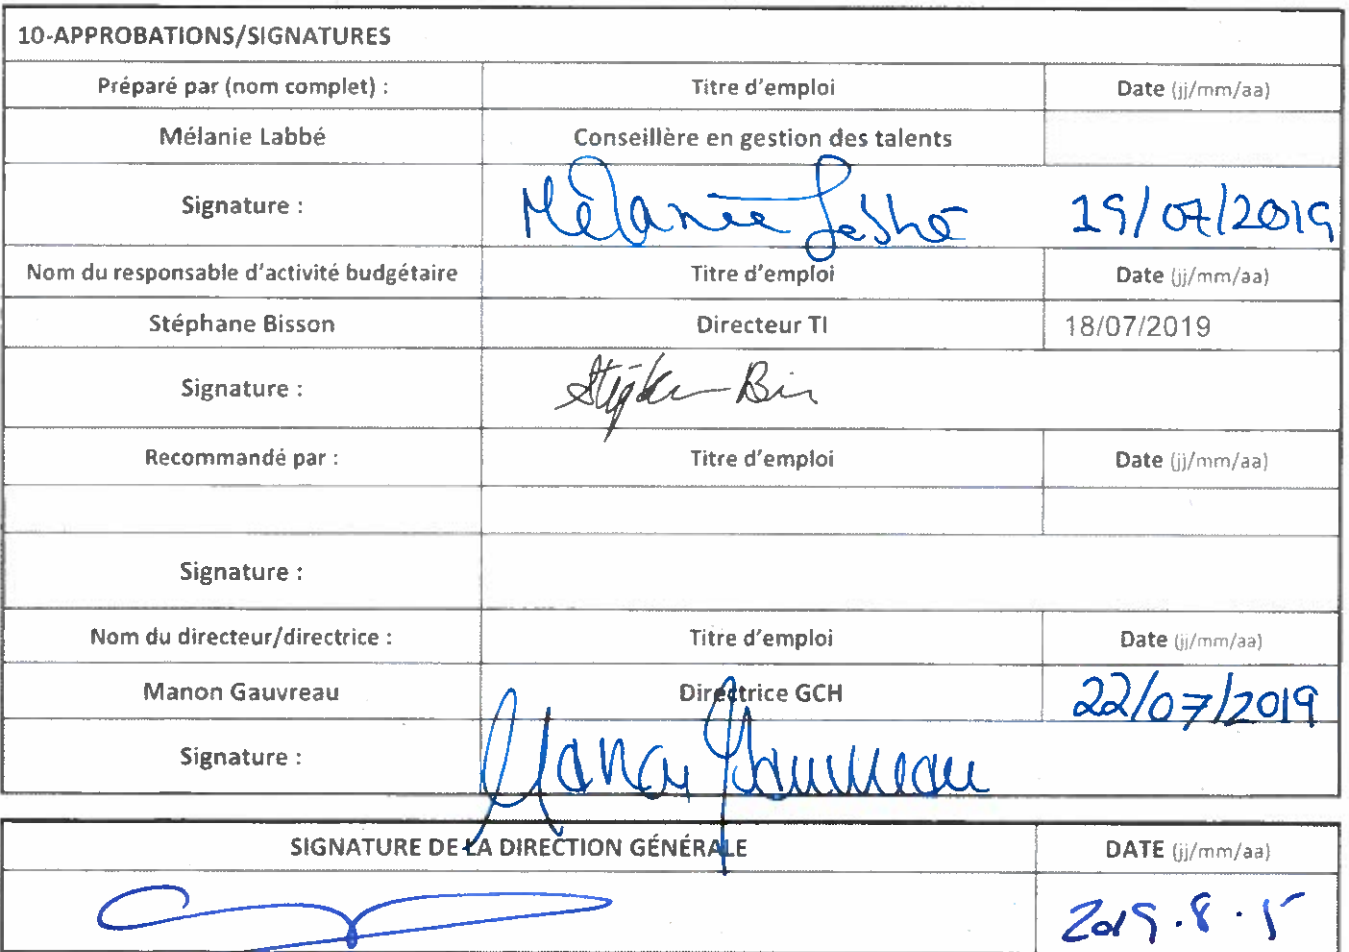 10-APPROBATIONS/SIGNATURES
Préparé par (nom complet) : Titre d'emploi Date (jj/mm/aa)
Mélanie Labbé Conseillère en gestion des talents
Signature : Mélanie Labbé 19/07/2019
Nom du responsable d'activité budgétaire Titre d'emploi Date (jj/mm/aa)
Stéphane Bisson Directeur TI 18/07/2019
Signature :
Recommandé par : Titre d'emploi Date (jj/mm/aa)
Signature :
Nom du directeur/directrice : Titre d'emploi Date (jj/mm/aa)
Manon Gauvreau Directrice GCH 22/07/2019
Signature : Manon Gauvreau
SIGNATURE DE LA DIRECTION GÉNÉRALE DATE (jj/mm/aa)
2019.8.5